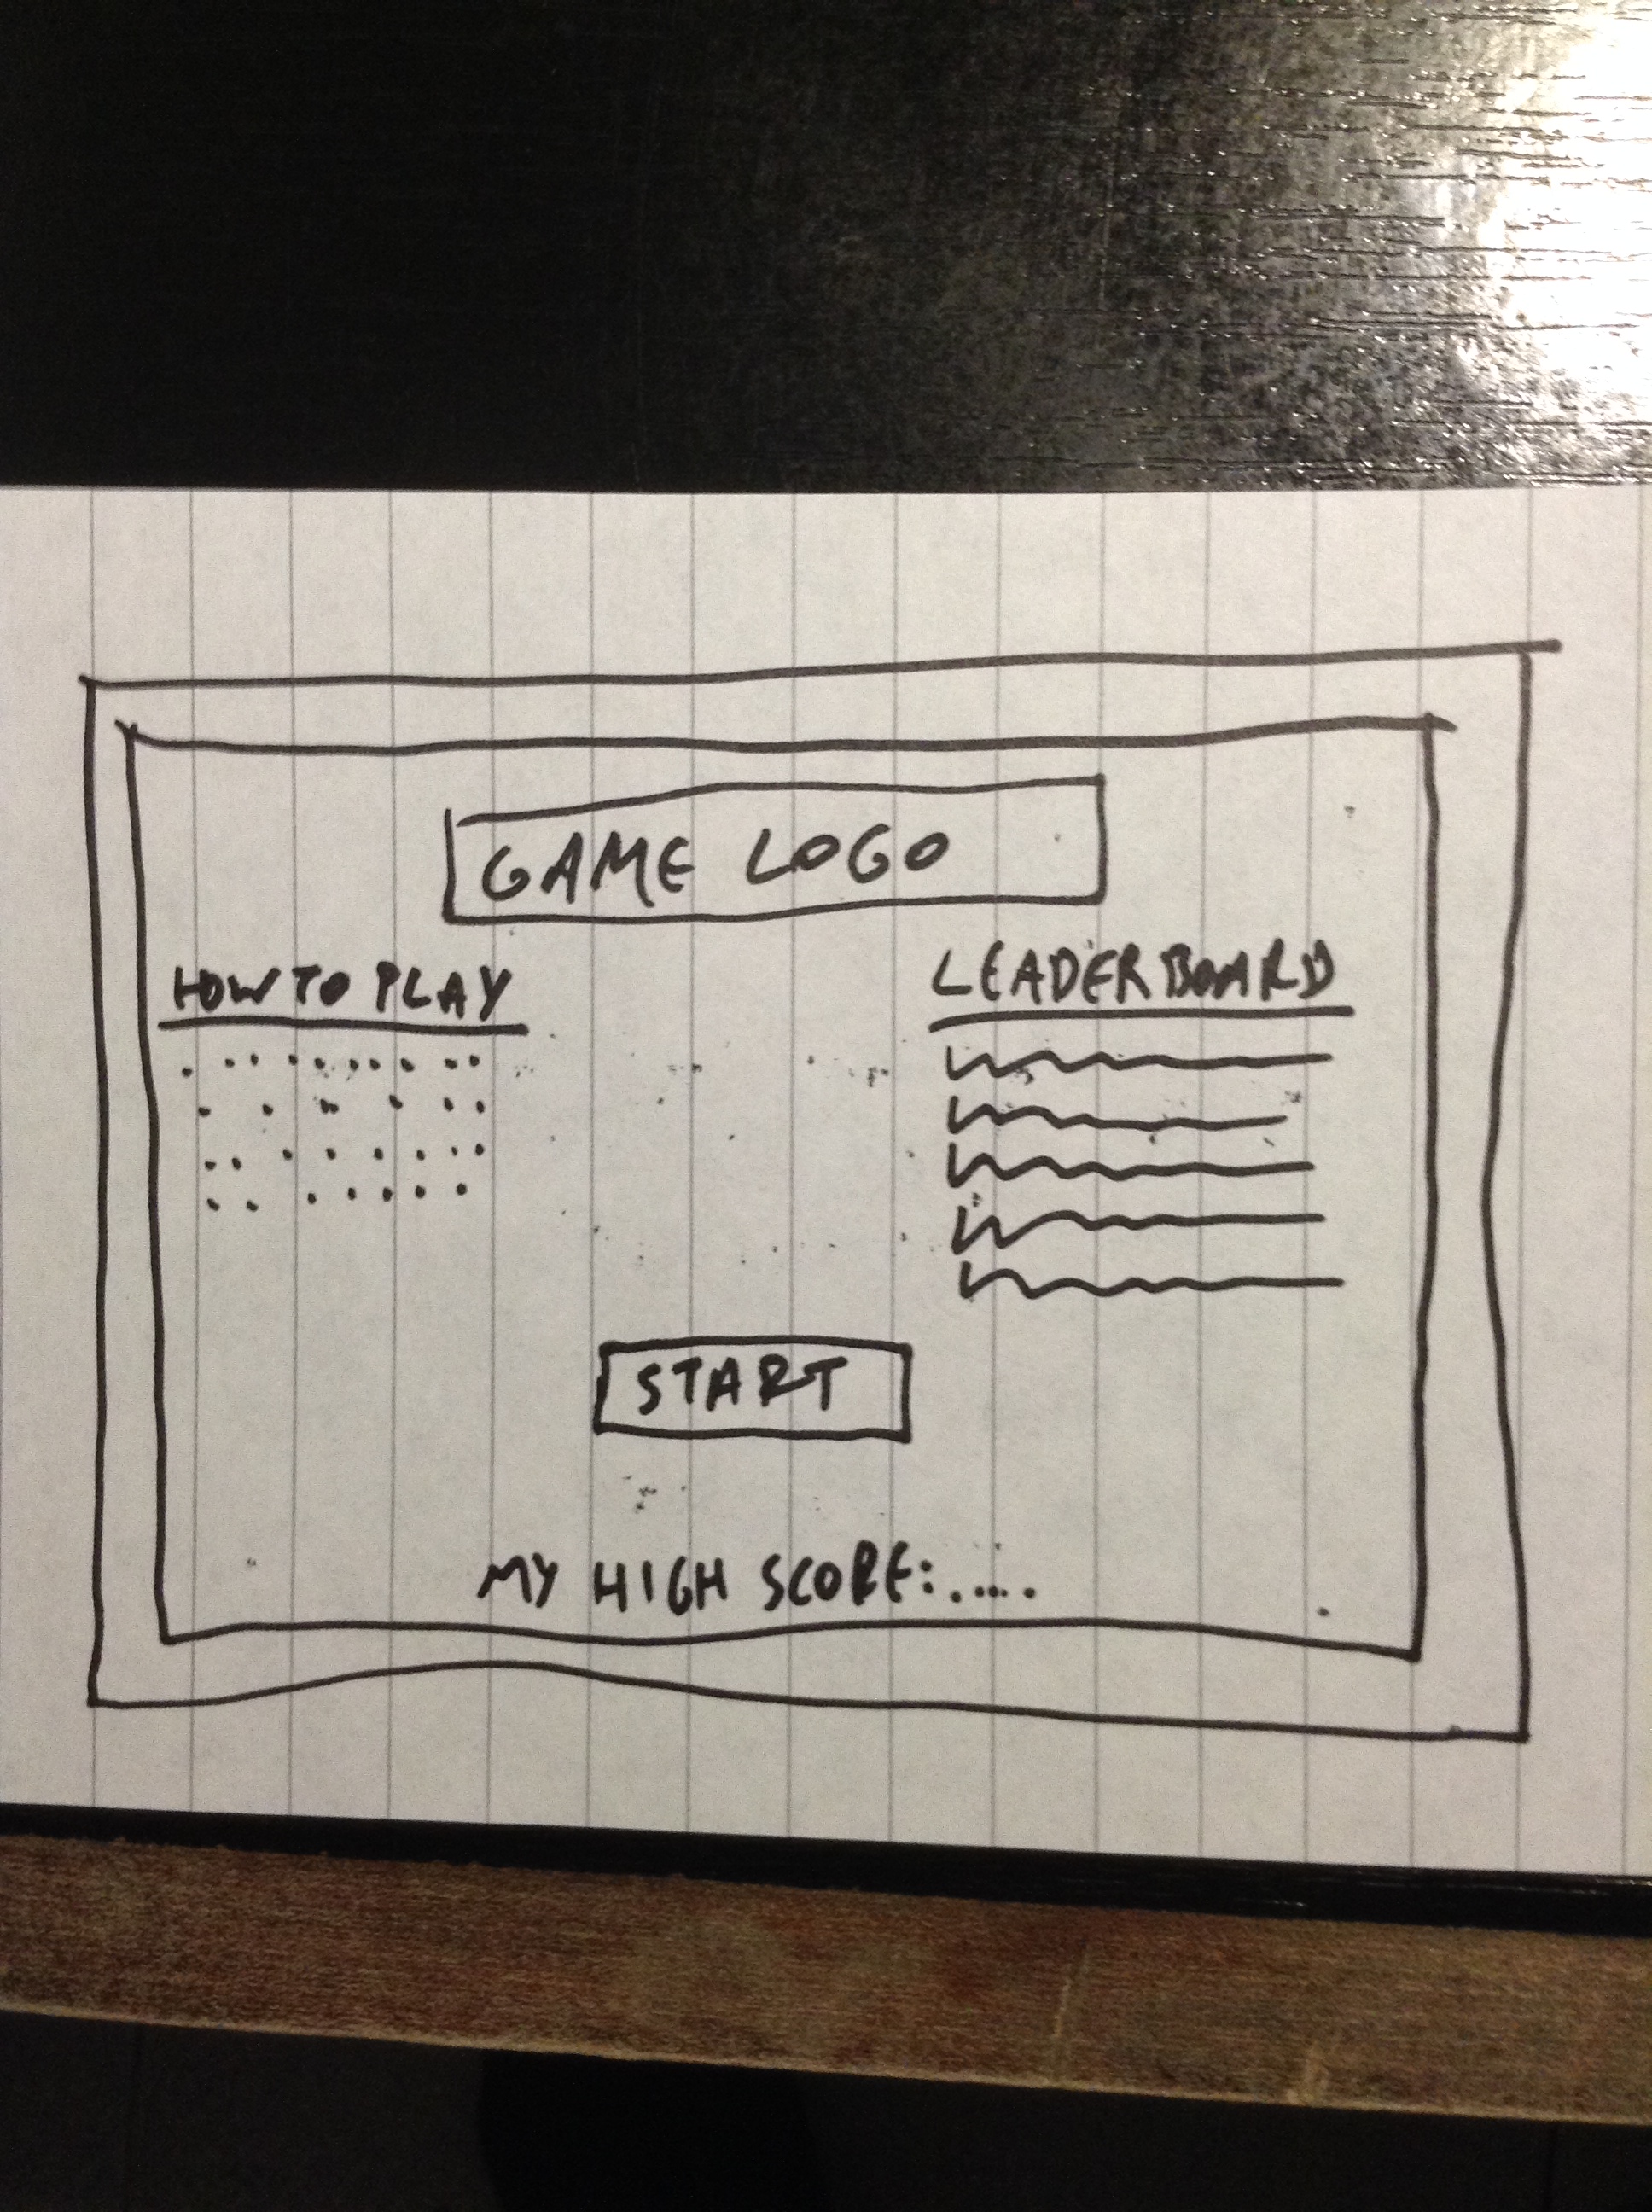 GAME LOGO
HOW TO PLAY
LEADERBOARD
START
MY HIGH SCORE:.....